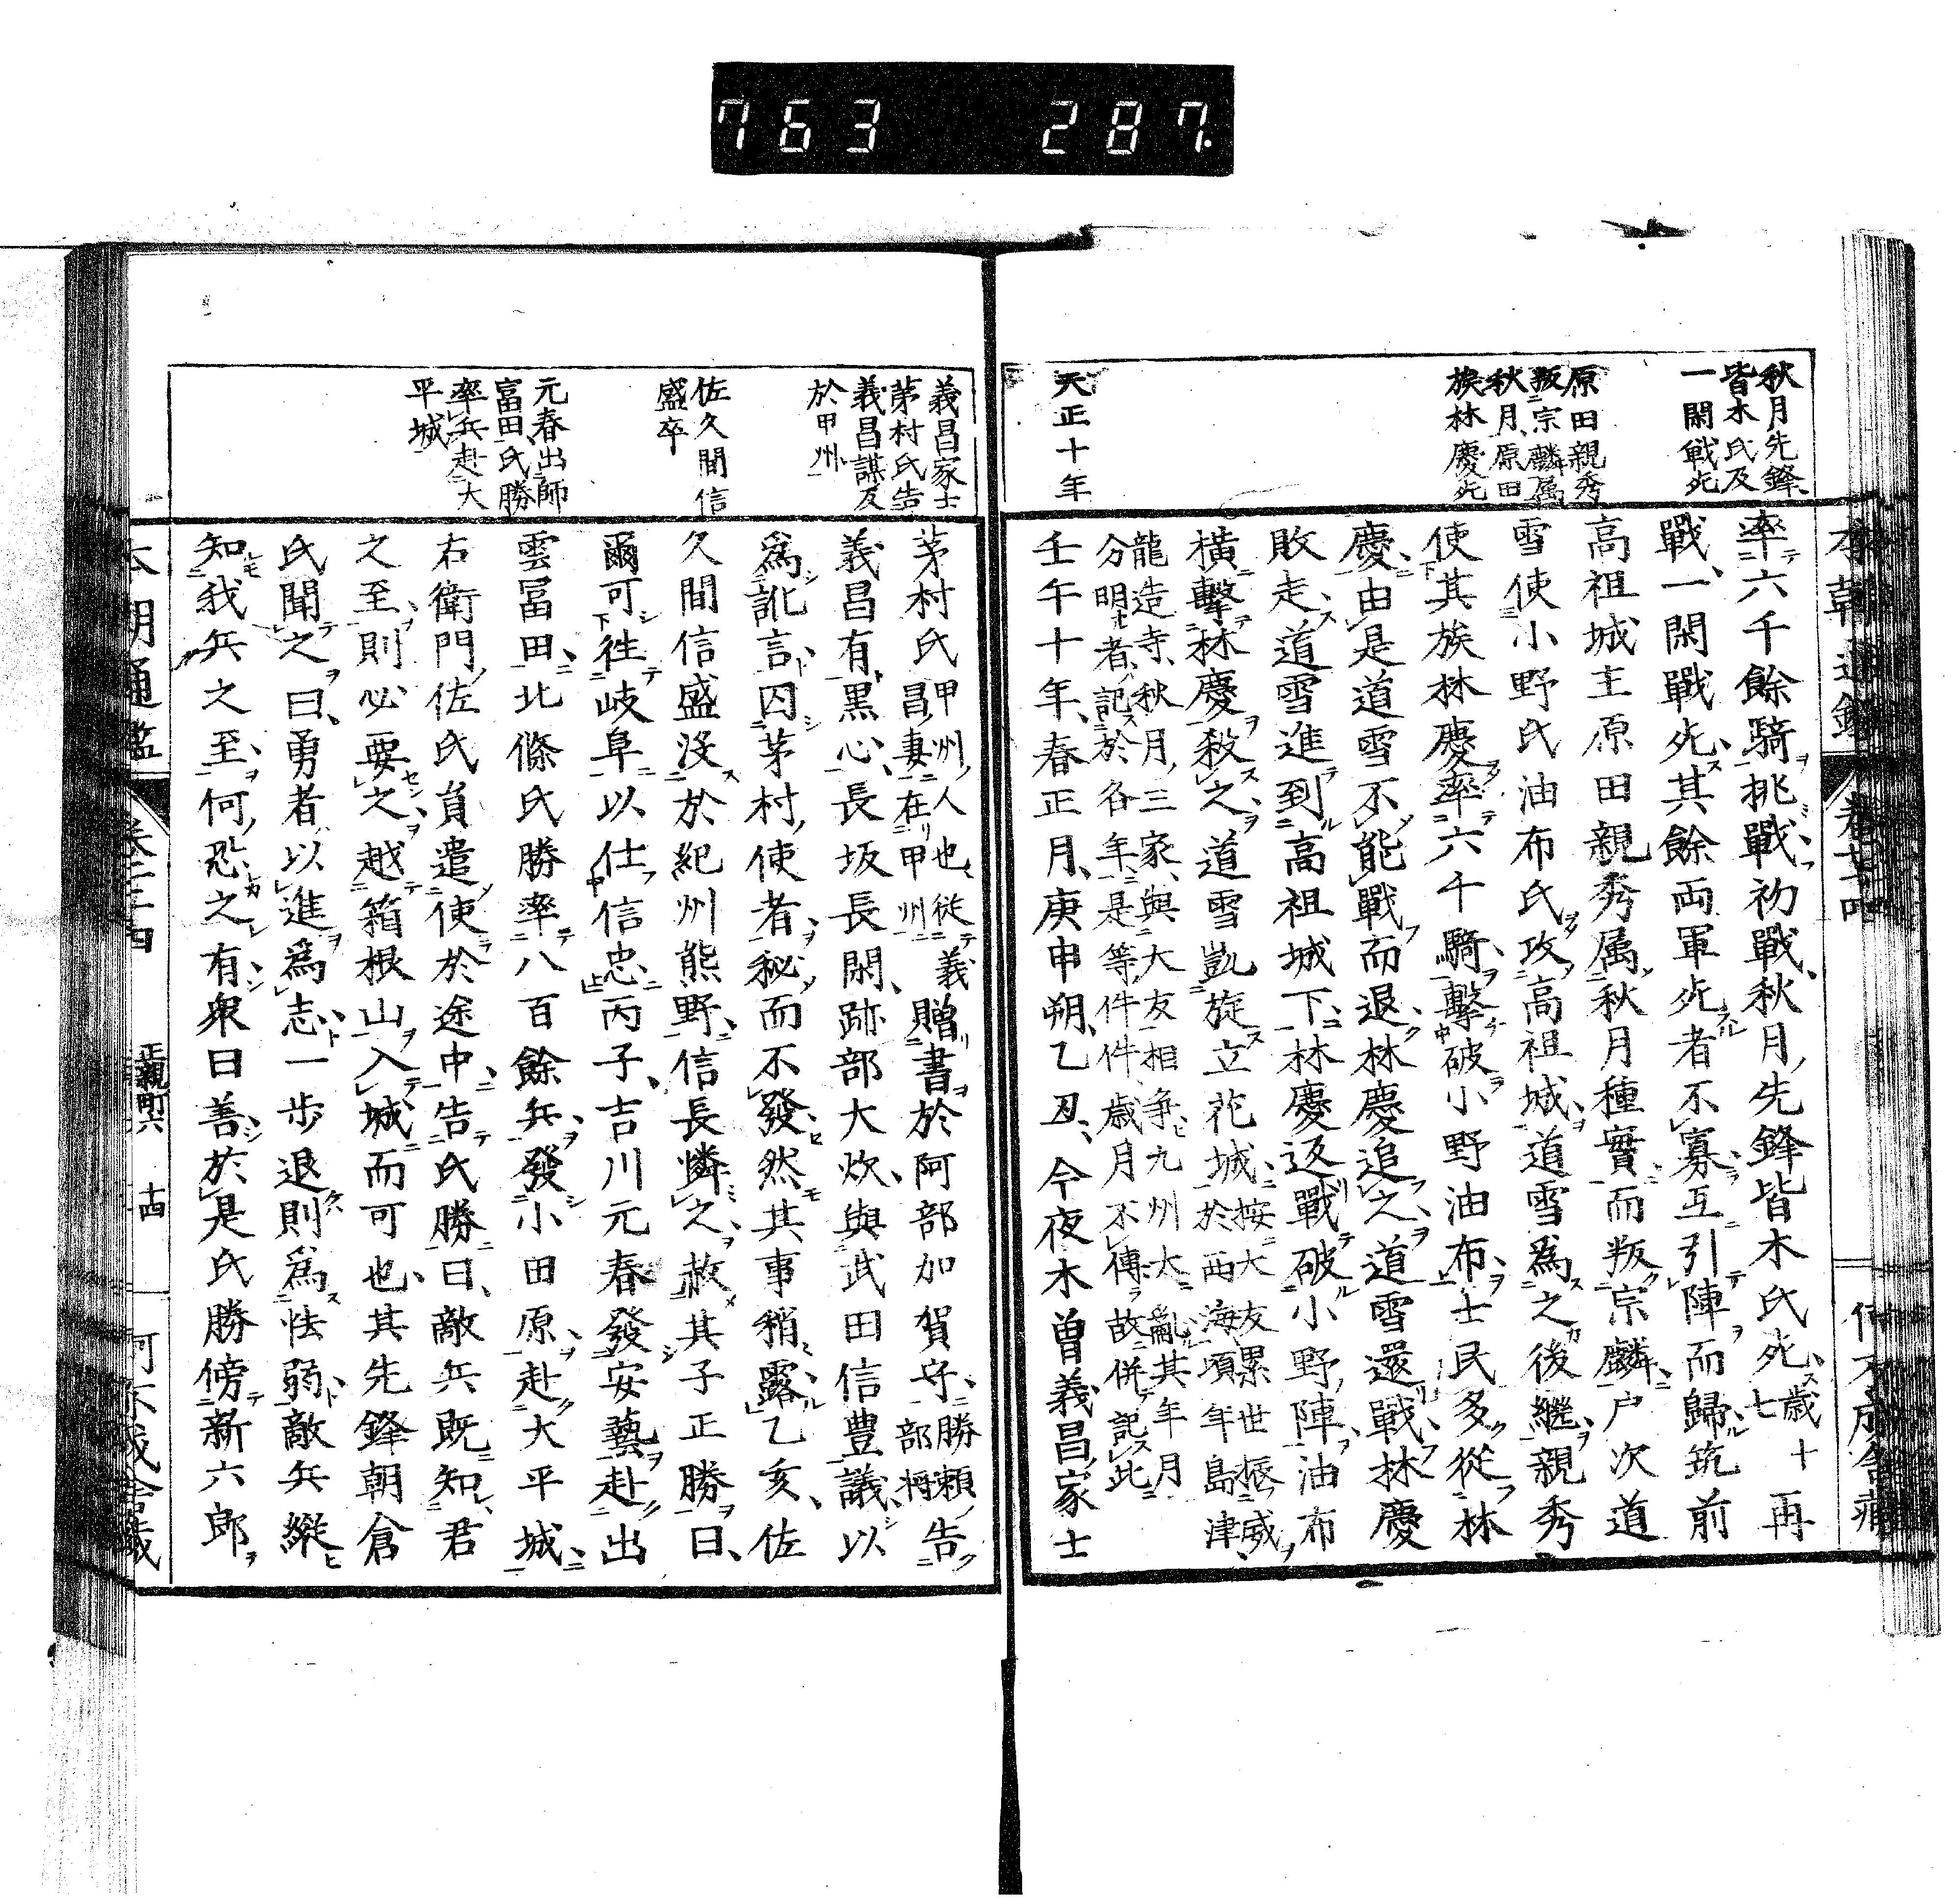 763 287.
秋月先鋒
皆木氏及
一閑戰死
原田親秀
叛宗麟属
秋月原田
族林慶死
天正十年
率六千餘騎挑戰初戰秋月先鋒皆木氏死歳十七再
戰一閑戰死其餘両軍死者不寡互引陣而歸筑前
高祖城主原田親秀属秋月種實而叛宗麟戸次道
雪使小野氏油布氏攻高祖城道雪爲之後継親秀
使其族林慶率六千騎擊破小野油布士民多從林
慶由是道雪不能戰而退林慶追之道雪還戰林慶
敗走道雪進到高祖城下林慶返戰破小野陣油布
橫擊林慶殺之道雪凱旋立花城按大友累世振威於西海頃年島津
龍造寺秋月三家與大友相爭九州大亂其年月
分明者記於各年是等件件歳月不傳故併記此
壬午十年春正月庚申朔乙丑今夜木曾義昌家士
義昌家士
茅村氏告
義昌謀反
於甲州
佐久間信
盛卒
元春出師
富田氏勝
率兵赴大
平城
茅村氏甲州人也從義昌妻在甲州贈書於阿部加賀守勝頼部将告
義昌有黒心長坂長閑跡部大炊與武田信豊議以
爲訛言囚茅村使者秘而不發然其事稍露乙亥佐
久間信盛没於紀州熊野信長憐之赦其子正勝曰
爾可往岐阜以仕信忠丙子吉川元春發安藝赴出
雲冨田北條氏勝率八百餘兵發小田原赴大平城
右衛門佐氏貟遣使於途中告氏勝曰敵兵既知君
之至則必要之越箱根山入城而可也其先鋒朝倉
氏聞之曰勇者以進爲志一歩退則爲怯弱敵兵縱
知我兵之至何恐之有衆曰善於是氏勝傍新六郎
本朝通鑑 巻七十四 正親町六 十四